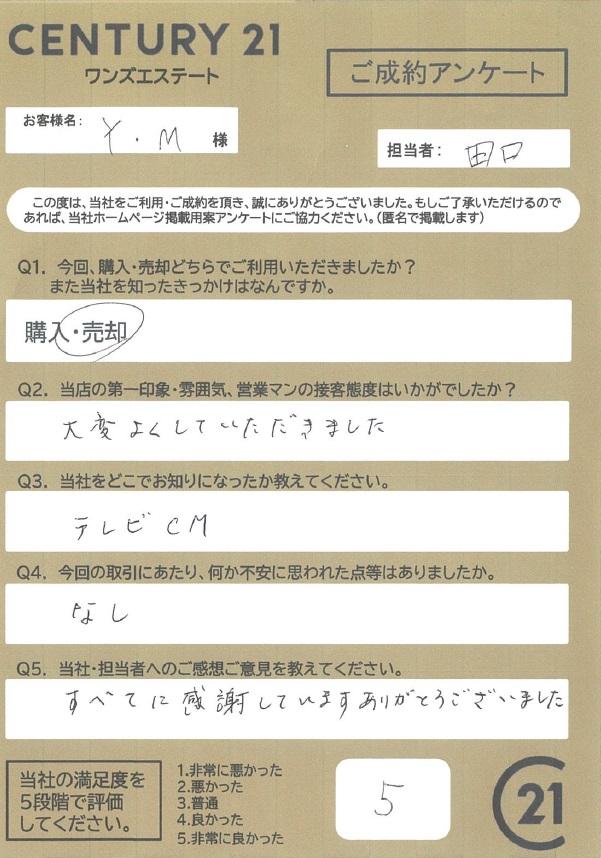 CENTURY 21
ワンズエステート
ご成約アンケート
お客様名: Y.M 様
担当者: 田口
この度は、当社をご利用・ご成約を頂き、誠にありがとうございました。もしご了承いただけるので
あれば、当社ホームページ掲載用案アンケートにご協力ください。(匿名で掲載します)
Q1. 今回、購入・売却どちらでご利用いただきましたか?
また当社を知ったきっかけはなんですか。
購入・売却
Q2. 当店の第一印象・雰囲気、営業マンの接客態度はいかがでしたか?
大変よくしていただきました
Q3. 当社をどこでお知りになったか教えてください。
テレビCM
Q4. 今回の取引にあたり、何か不安に思われた点等はありましたか。
なし
Q5. 当社・担当者へのご感想ご意見を教えてください。
すべてに感謝していますありがとうございました
当社の満足度を
5段階で評価
してください。
1.非常に悪かった
2.悪かった
3.普通
4.良かった
5.非常に良かった
5
C21